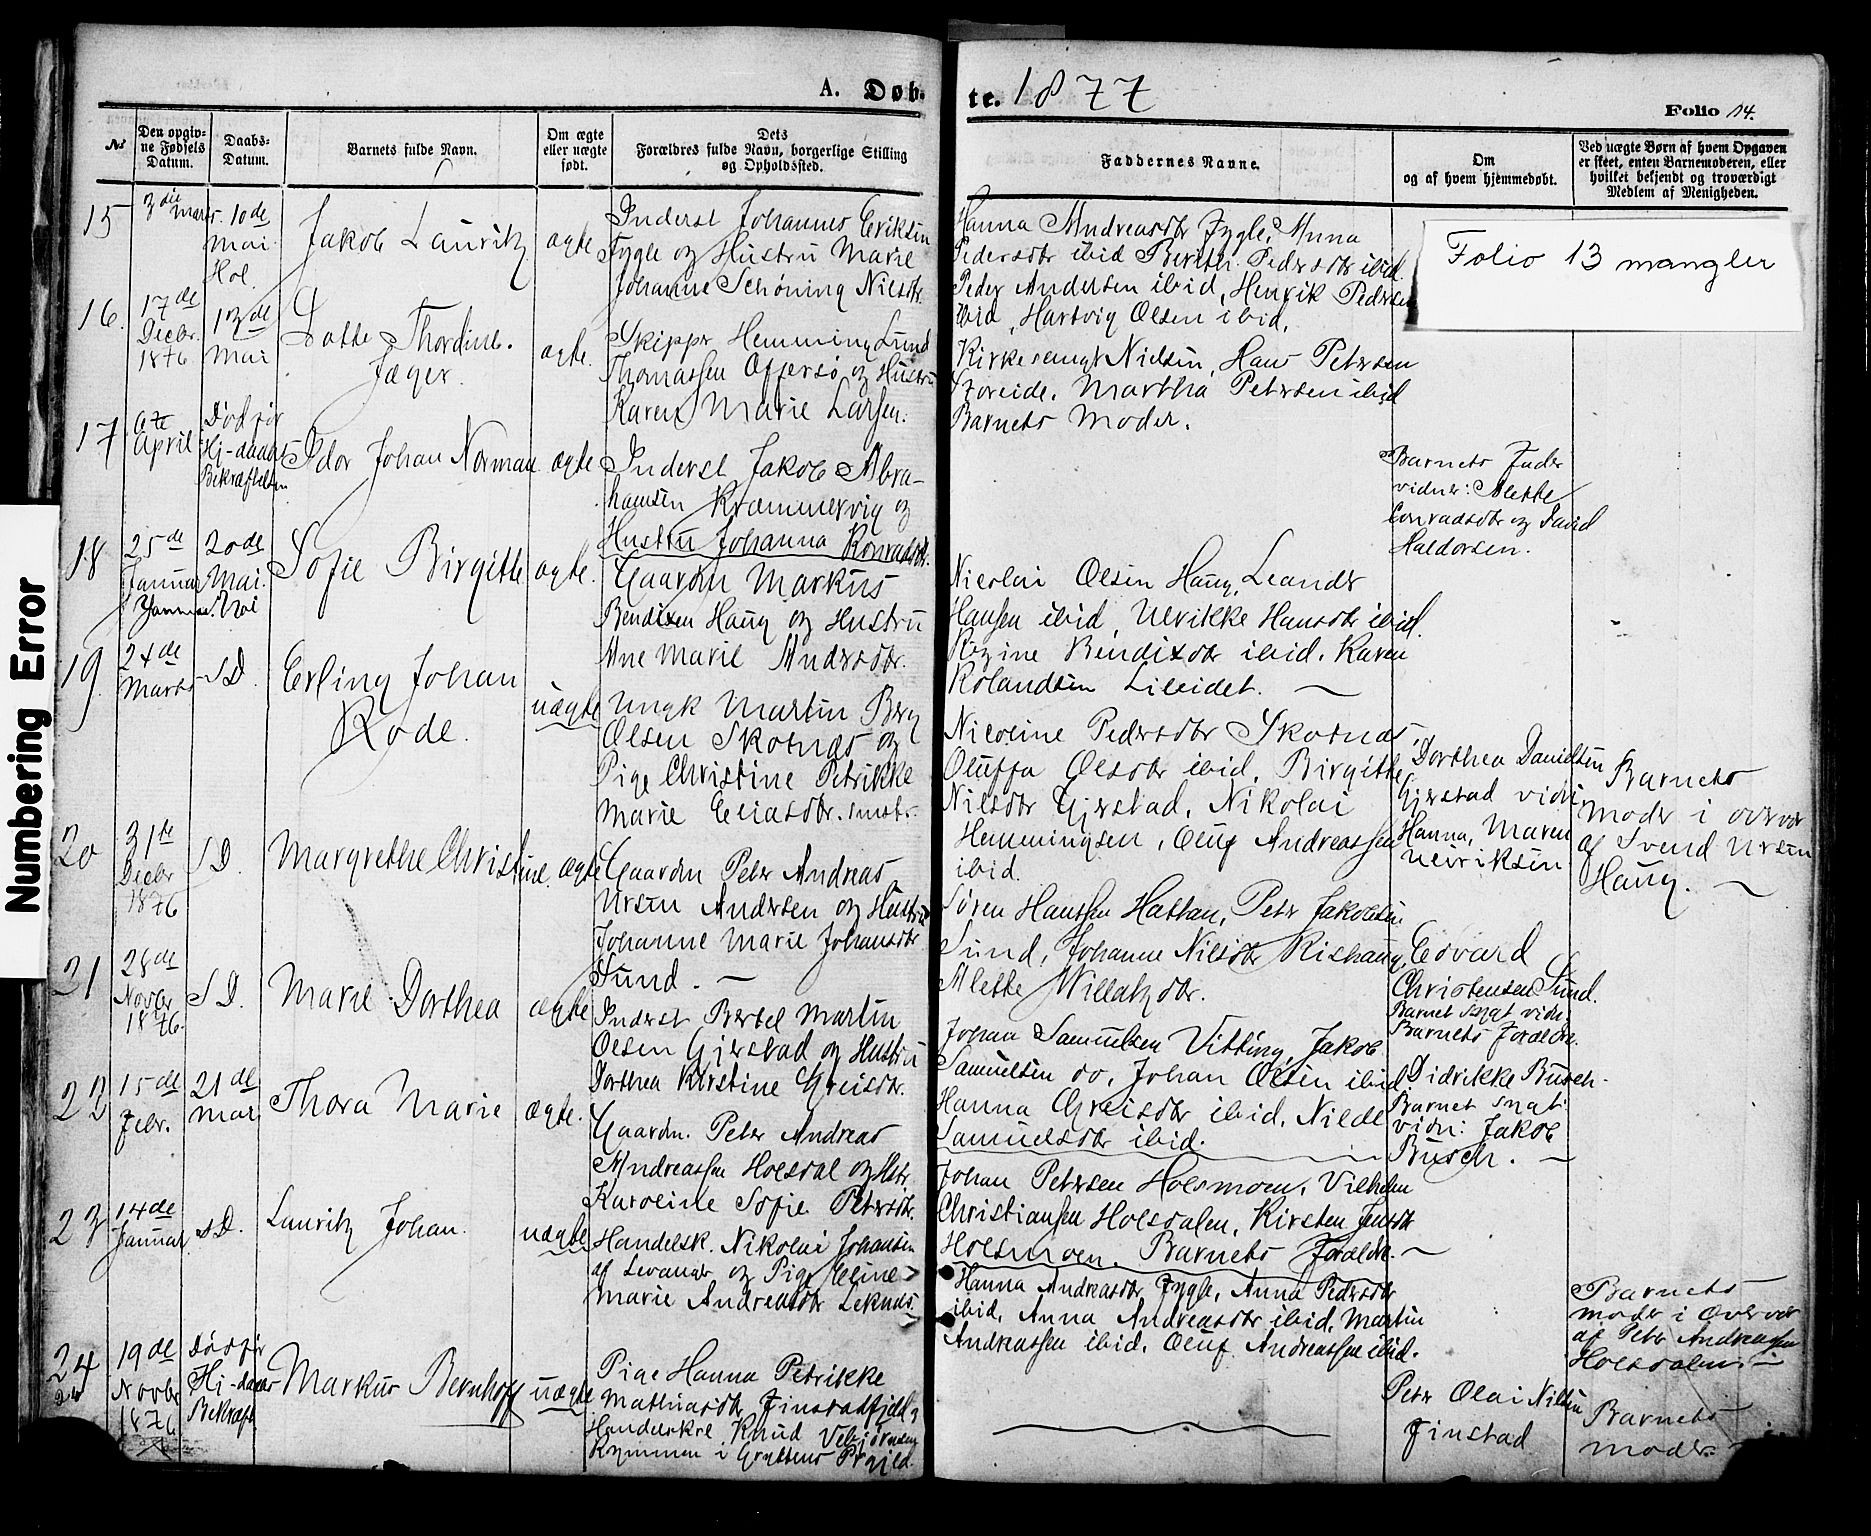 A. Døb-
te. 1877
Folio 14.
No
Den opgiv-
ne Fødsels
Datum.
Daabs-
Datum.
Barnets fulde Navn.
Om ægte
eller uægte
født.
Dets
Forældres fulde Navn, borgerlige Stilling
og Opholdssted.
Faddernes Navne.
Om
og af hvem hjemmedøbt.
Ved uægte Børn af hvem Opgaven
er skeet, enten Barnemoderen, eller
hvilket beljendt og troværdigt
Medlem af Menigheden.
Folio 13 mangler
Numbering Error
15
3die Marts.
10de
Mai.
Hol.
Jakob Lauritz
ægte
Inderst Johannes Eriksen
Fygle og Hustru Marie
Johanne Schøning Nilsdtr.
Hanna Andreasdtr Fygle, Anna
Pedersdtr ibid Pedersdtr ibid.
Peder Andersen ibid, Henrik Pedersen
ibid, Hartvig Olsen ibid.
16.
17de
Decbr.
1876
13de
Mai
Thordine
Jæger.
ægte.
Skipper Hemming Lund
Thomassen Offersø og Hustru
Karen Marie Larsen.
Kirkesangr Nielsen, Hans Petersen
Storeide, Martha Petersen ibid
Barnets Moder.
17
April
Død før
Hj-daabs
Bekræftelsen
Johan Norman
ægte
Inderst Jakob Abra-
hamsen Kræmmervig og
Hustru Johanna Konradsdtr.
Barnets Fader
vidner: Alette
Conradsdtr og David
Haldorsen.
18
25de
Januar
Januar.
20de
Mai.
Hol
Sofie Birgitte
ægte.
Gaardm Markus
Bendixen Haug og Hustru
Ane Marie Andersdtr.
Nicolai Olsen Haug, Leander
Hansen ibid, Ulrikke Hansdtr ibid.
Regine Bendixdtr ibid. Karen
Rolandsen Lileidet.
19
24de
Marts
s D.
Erling Johan
Rode.
uægte
Ungk Martin Berg
Olsen Skotnæs og
Pige Christine Petrikke
Marie Eliasdtr.
Nicoline Pedersdtr Skotnæs,
Oluffa Olsdtr ibid, Birgitte
Nilsdtr Gjerstad, Nikolai
Hemmingsen, Oluf Andreassen
ibid.
Dorthea Davidsen
Gjerstad vidn:
Hanna, Maren
Ulriksen
Barnets
Moder i overvær
af Svend Ursin
Haug.
20
31te
Decbr
1876
s D.
Margrethe Christine.
ægte
Gaardm Peter Andreas
Ursin Andersen og Hustru
Johanne Marie Johansdtr
Sund.
Søren Hanssen Hattan, Peter Jakobsen
Sund, Johanne Nilsdtr Rishaug,
Alette Willatzdtr.
Edvard
Christensen Sund.
Barnet svgt vidn.
Barnets Forældre.
21
28de
Novbr
1876.
s D.
Marie Dorthea
ægte
Inderst Bertel Martin
Olsen Gjerstad og Hustru
Dorthea Kirstine Greisdtr.
Johan Samuelsen Vitting, Jakob
Samuelsen do, Johan Olsen ibid
Hanna Greisdtr ibid. Nilde
Samuelsdtr ibid.
Didrikke Busch.
Barnet svgt:
vidn: Jakob
Busch.
22
15de
Febr.
21de
Mai
Thora Marie
ægte.
Gaardm. Peter Andreas
Andreassen Holsdal og Hstr
Karoline Sofie Petersdtr.
Johan Petersen Holsmoen, Vilhelm
Christiansen Holsdalen, Kirsten Jensdtr
Holsmoen. Barnets Forældre.
23
14de
Januar
s D.
Lauritz Johan.
uægte
Handelsk. Nikolai Johansen
af Levanger og Pige Eline
Marie Andreasdtr Leknæs.
Hanna Andreasdtr Fygle, Anna Pedersdtr
ibid, Anna Andreasdtr ibid, Martin
Andreassen ibid. Oluf Andreassen ibid.
Barnets
moder i overvær
af Peter Andreassen
Holsdalen
24
24
19de
Novbr
1876
Død før
Hj-daabs
Bekræft
Markus Bernhoff
uægte
Pige Hanna Petrikke
Mathiasdtr Finstadfjeld,
Handelskrl Knud
i Gryttens Prgjeld.
Peter Olai Nilsen
Finstad
Barnets
moder.